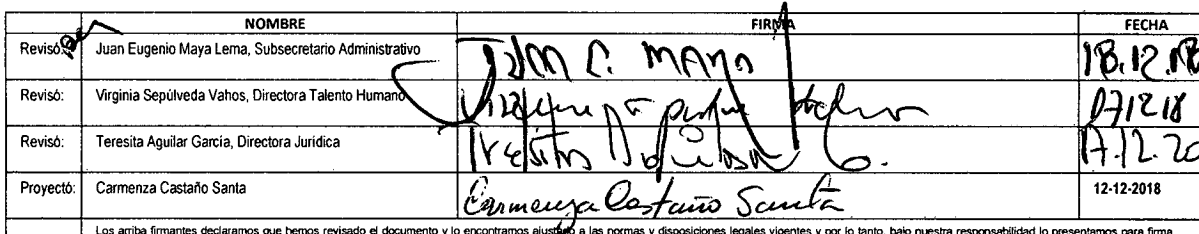 NOMBRE FIRMA FECHA
Revisó: Juan Eugenio Maya Lema, Subsecretario Administrativo 18.12.18
Revisó: Virginia Sepúlveda Vahos, Directora Talento Humano 171218
Revisó: Teresita Aguilar García, Directora Jurídica Teresita Aguilar G. 17.12.20
Proyectó: Carmenza Castaño Santa Carmenza Castaño Santa 12-12-2018
Los arriba firmantes declaramos que hemos revisado el documento y lo encontramos ajustado a las normas y disposiciones legales vigentes y por lo tanto, bajo nuestra responsabilidad lo presentamos para firma